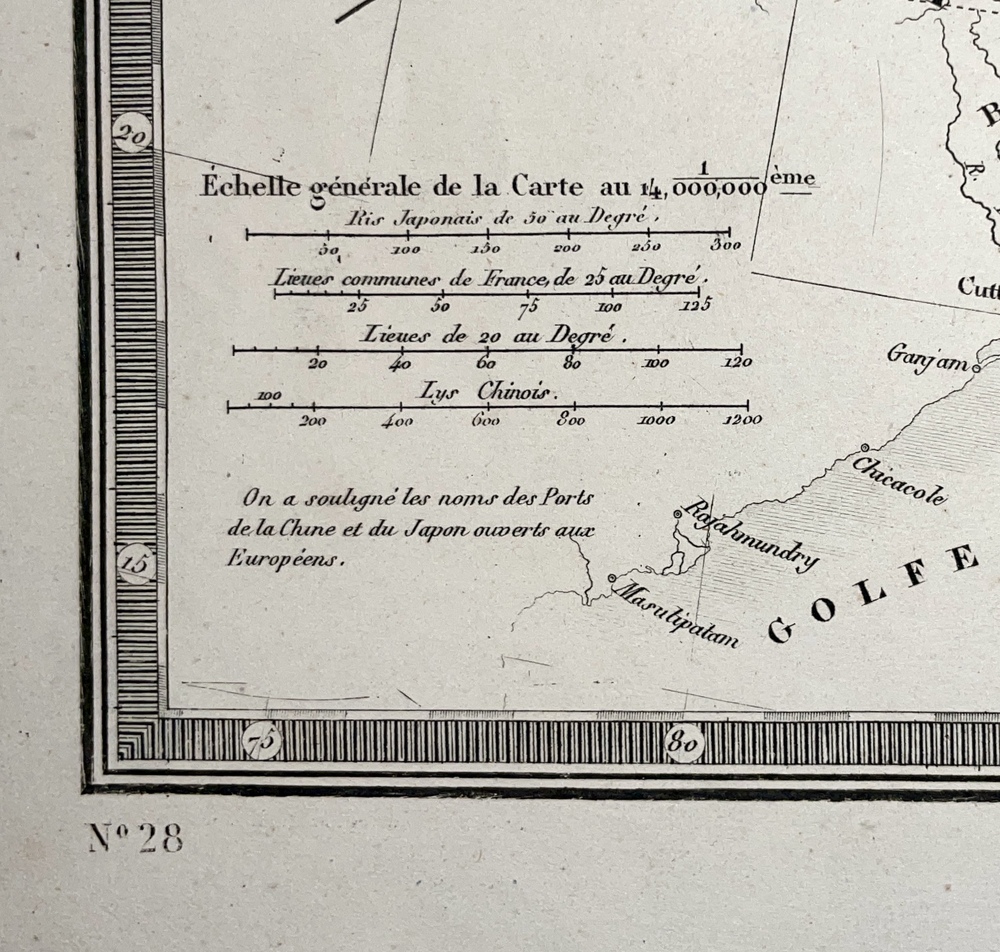 20
Échelle générale de la Carte au 1/14,000,000ème
Ris Japonais de 50 au Degré.
50 100 150 200 250 300
Lieues communes de France, de 25 au Degré.
25 50 75 100 125
Lieues de 20 au Degré.
20 40 60 80 100 120
Lys Chinois.
100
200 400 600 800 1000 1200
On a souligné les noms des Ports
de la Chine et du Japon ouverts aux
Européens.
15
B
R.
Cutt
Ganjam
Chicacole
Rajahmundry
Masulipatam
GOLFE
75
80
Nº 28